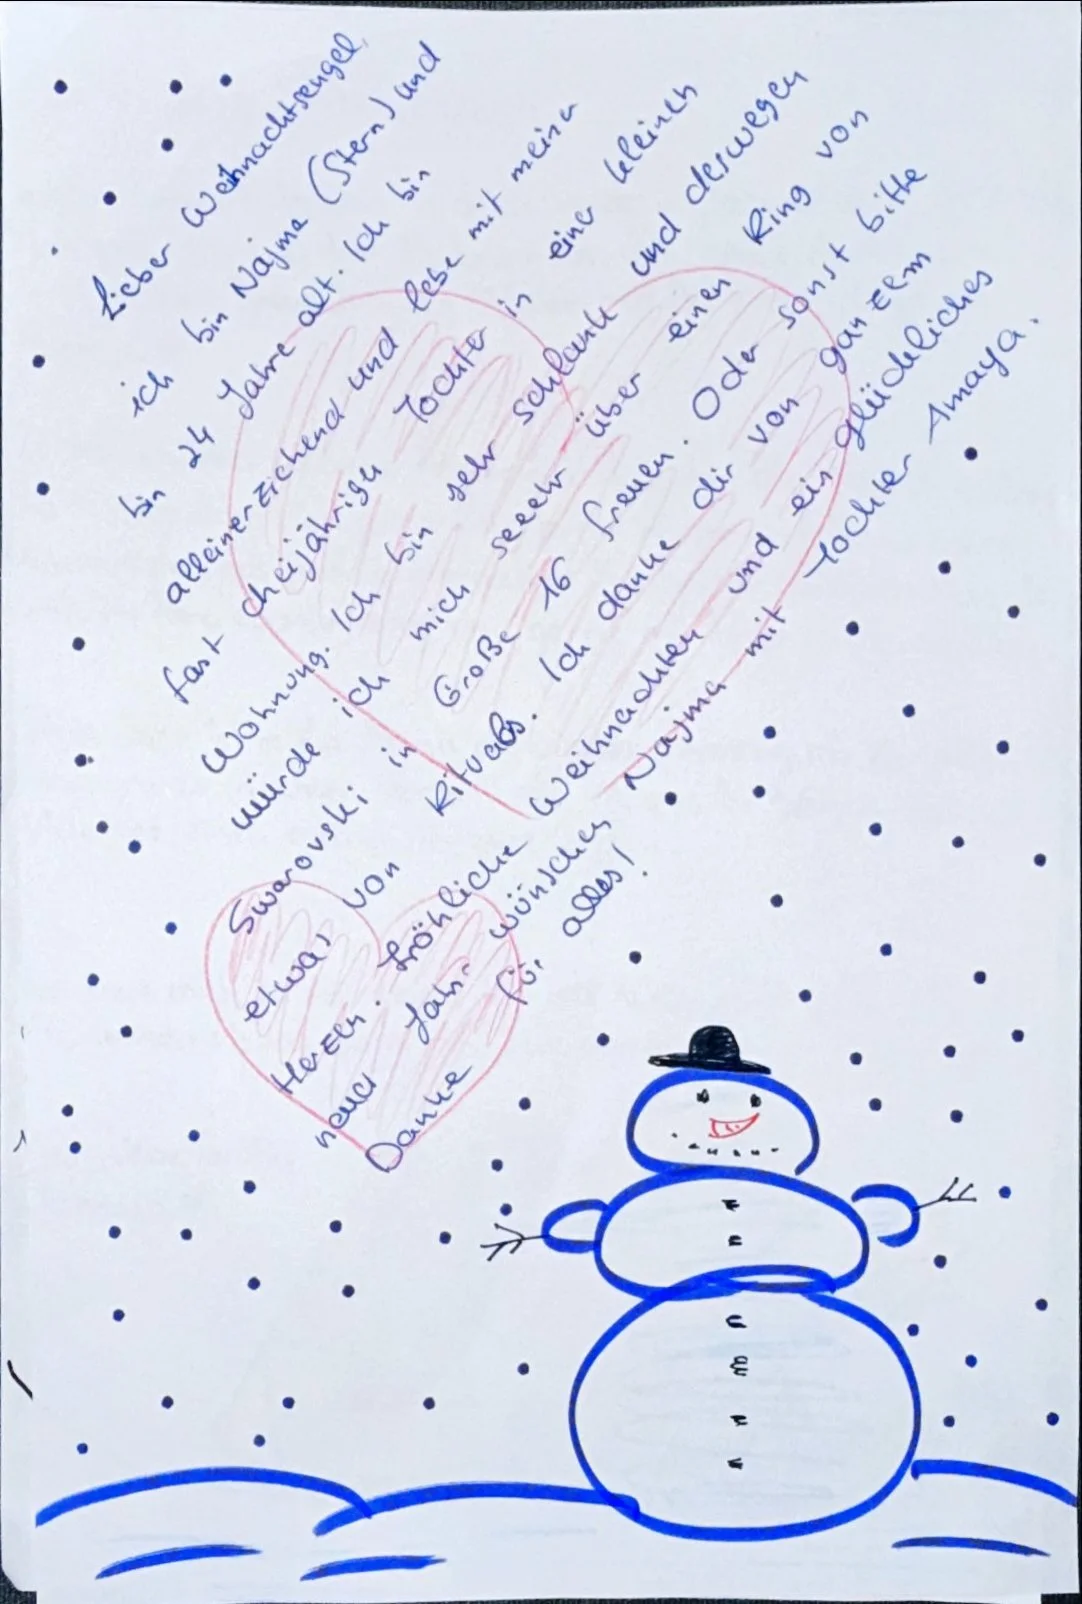 Lieber Weihnachtsengel,
ich bin Najma (Stern) und
bin 24 Jahre alt. Ich bin
alleinerziehend und lebe mit meiner
fast dreijährigen Tochter in einer kleinen
Wohnung. Ich bin sehr schlank und deswegen
würde ich mich seeehr über einen Ring von
Swarovski in Größe 16 freuen. Oder sonst bitte
etwas von Rituals. Ich danke dir von ganzem
Herzen. Fröhliche Weihnachten und ein glückliches
neues Jahr wünschen Najma mit Tochter Amaya.
Danke für alles!